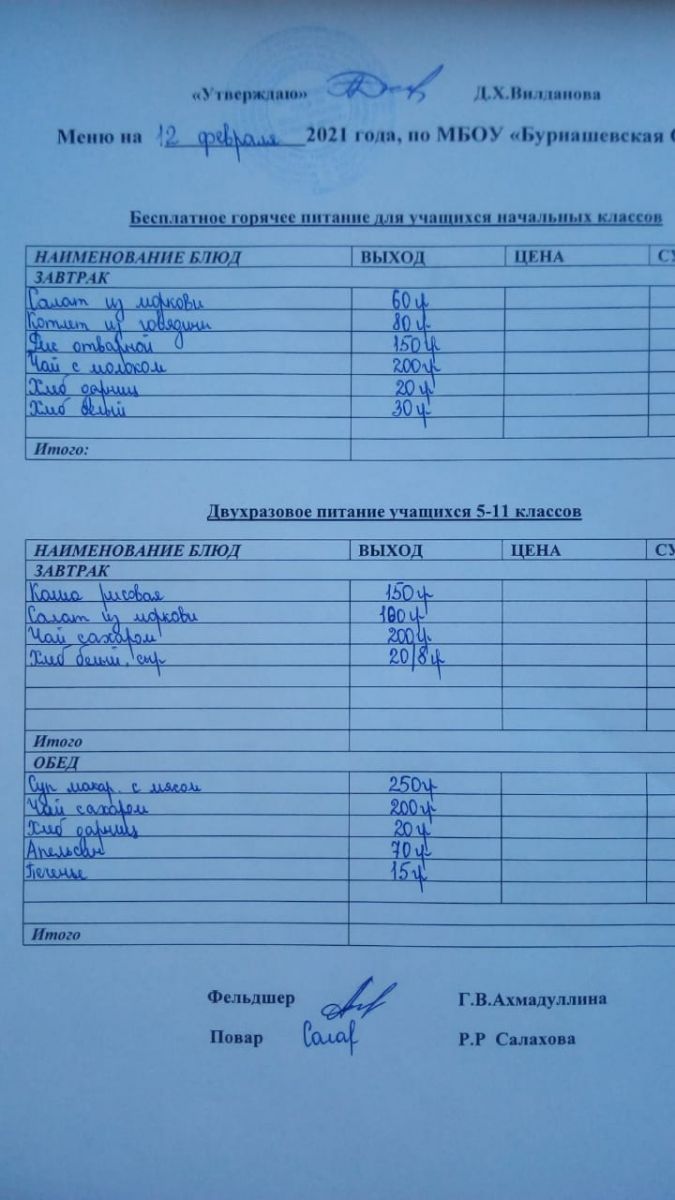 «Утверждаю» Д.Х.Вилданова
Меню на 12 февраля 2021 года, по МБОУ «Бурнашевская
Бесплатное горячее питание для учащихся начальных классов
НАИМЕНОВАНИЕ БЛЮД ВЫХОД ЦЕНА СУ
ЗАВТРАК
Салат из моркови 60 г
Котлет из говядины 80 г
Рис отварной 150 г
Чай с молоком 200 г
Хлеб дарниц 20 г
Хлеб белый 30 г
Итого:
Двухразовое питание учащихся 5-11 классов
НАИМЕНОВАНИЕ БЛЮД ВЫХОД ЦЕНА СУ
ЗАВТРАК
Каша рисовая 150 г
Салат из моркови 100 г
Чай сахаром 200 г
Хлеб белый, сыр 20/8 г
Итого
ОБЕД
Суп макар. с мясом 250 г
Чай сахаром 200 г
Хлеб дарниц 20 г
Апельсин 70 г
Печенье 15 г
Итого
Фельдшер Г.В.Ахмадуллина
Повар Салах Р.Р Салахова